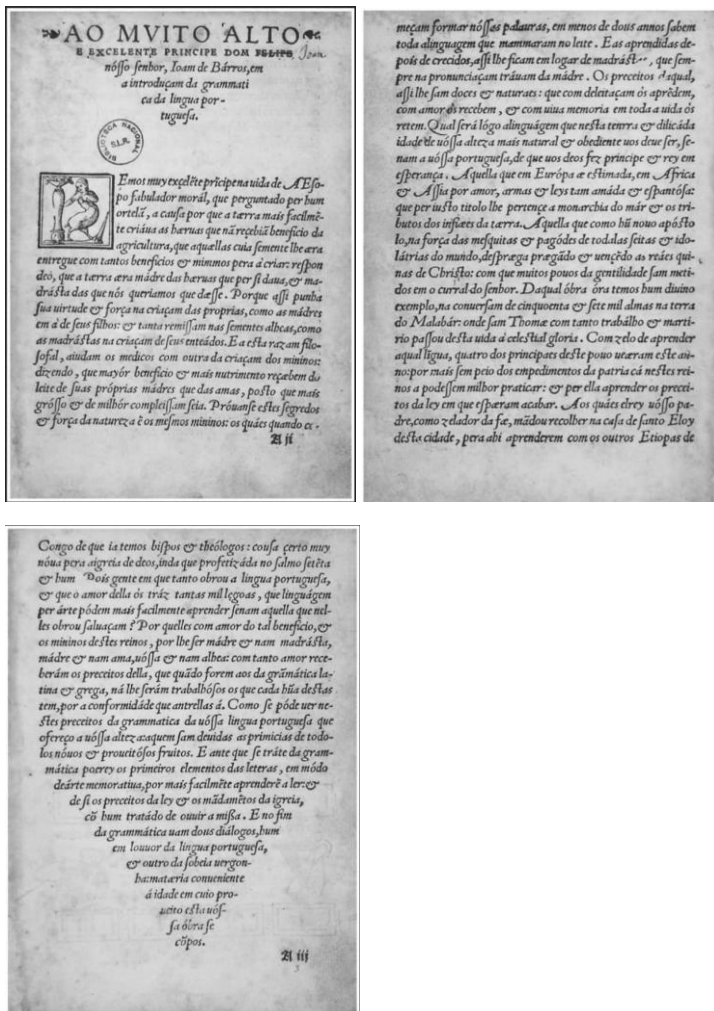 AO MVITO ALTO
E EXCELENTE PRINCIPE DOM FELIPE Joam
nósso senhor, Ioam de Bárros, em
a introduçam da grammati
ca da lingua por-
tuguesa.
BIBLIOTECA NACIONAL
S.L.R.
Emos muy exçelẽte prĩcipe na uida de AEso-
po fabulador morál, que perguntado per hum
ortelã, a causa por que a tærra mais facilmẽ-
te criáua as hæruas que nã reçebiã benefiçio da
agricultura, que aquællas cuia semente lhe æra
entregue com tantos benefiçios & mimmos pera á criar: respon
deo, que a tærra æra mádre das hæruas que per si daua, & ma-
drásta das que nós queriamos que dæsse. Porque assi punha
sua uirtude & força na criaçam das proprias, como as mádres
em a de seus filhos: & tanta remissam nas sementes alheas, como
as madrástas na criaçam de seus enteádos. E a esta razam filo-
sofal, aiudam os medicos com outra da criaçam dos mininos:
dizendo, que mayór benefiçio & mais nutrimento reçæbem do
leite de suas próprias mádres que das amas, posto que mais
grósso & de milhór compleissam seia. Próuanse estes segredos
& força da natureza ẽ os mesmos mininos: os quáes quando co-
A ij
meçam formar nóssas palauras, em menos de dous annos sabem
toda a linguagem que mammaram no leite. E as aprendidas de-
pois de creçidos, assi lhe ficam em logar de madrásta, que sem-
pre na pronunçiaçam tráuam da mádre. Os preceitos da qual,
assi lhe sam doçes & naturaes: que com deleitaçam ós aprẽdem,
com amor ós recebem, & com uiua memoria em toda a uida ós
retem. Qual será lógo a linguágem que nesta tenrra & dilicáda
idade de uóssa alteza mais natural & obediente uos deue ser, se-
nam a uóssa portuguesa, de que uos deos fez principe & rey em
esperança. Aquella que em Európa æ estimada, em Africa
& Assia por amor, armas & leys tam amáda & espantósa:
que per iusto titolo lhe pertençe a monarchia do már & os tri-
butos dos infiæes da tærra. Aquella que como hũ nouo apósto
lo, na força das mesquitas & pagódes de todalas seitas & ido-
látrias do mundo, despræga prægãdo & uençẽdo as reáes qui-
nas de Christo: com que muitos pouos da gentilidade sam meti-
dos em o curral do senhor. Da qual óbra óra temos hum diuino
exemplo, na conuersam de cinquoenta & sete mil almas na terra
do Malabár: onde sam Thomæ com tanto trabálho & marti-
rio passou desta uida á celestial gloria. Com zelo de aprender
a qual lĩgua, quatro dos prinçipaes deste pouo ueæram este án-
no: por mais sem peio dos empedimentos da patria cá nestes rei-
nos a podessem milhor praticar: & per ella aprender os preçei-
tos da ley em que espæram acabar. Aos quáes elrey uósso pa-
dre, como zelador da fæ, mãdou recolher na casa de santo Eloy
desta cidade, pera ahi aprenderem com os outros Etiopas de
Congo de que ia temos bispos & theólogos: cousa çerto muy
nóua pera a igreia de deos, inda que profetizáda no salmo setẽta
& hum Pois gente em que tanto obrou a lingua portuguesa,
& que o amor della ós tráz tantas mil legoas, que linguágem
per árte pódem mais facilmente aprender senam aquella que nel-
les obrou saluaçam? Por quelles com amor do tal beneficio, &
os mininos destes reinos, por lhe ser mádre & nam madrásta,
mádre & nam ama, uóssa & nam alhea: com tanto amor rece-
berám os preceitos della, que quãdo forem aos da grãmática la-
tina & grega, ná lhe serám trabalhósos os que cada hũa destas
tem, por a conformidáde que antrellas á. Como se póde uer ne-
stes preceitos da grammatica da uóssa lingua portuguesa que
ofereço a uóssa alteza: a quem sam deuidas as primicias de todo-
los nóuos & proueitósos fruitos. E ante que se tráte da gram-
mática poerey os primeiros elementos das leteras, em módo
de árte memoratiua, por mais facilmẽte aprenderẽ a ler: &
de si os preceitos da ley & os mãdamẽtos da igreia,
cõ hum tratádo de ouuir a missa. E no fim
da grammática uam dous diálogos, hum
em louuor da lingua portuguesa,
& outro da sobeia uergon-
ha: matæria conueniente
á idade em cuio pro-
ueito esta uós-
sa óbra se
cõpos.
A iij
3